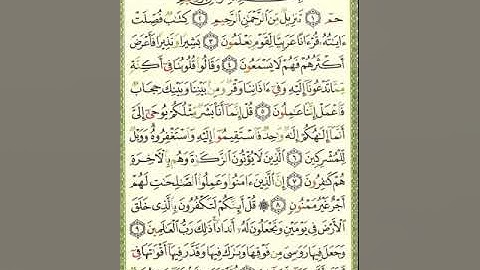 حمٓ ١ تَنزِيلٌ مِّنَ ٱلرَّحْمَٰنِ ٱلرَّحِيمِ ٢ كِتَٰبٌ فُصِّلَتْ
ءَايَٰتُهُۥ قُرْءَانًا عَرَبِيًّا لِّقَوْمٍ يَعْلَمُونَ ٣ بَشِيرًا وَنَذِيرًا فَأَعْرَضَ
أَكْثَرُهُمْ فَهُمْ لَا يَسْمَعُونَ ٤ وَقَالُوا۟ قُلُوبُنَا فِىٓ أَكِنَّةٍ
مِّمَّا تَدْعُونَآ إِلَيْهِ وَفِىٓ ءَاذَانِنَا وَقْرٌ وَمِنۢ بَيْنِنَا وَبَيْنِكَ حِجَابٌ
فَٱعْمَلْ إِنَّنَا عَٰمِلُونَ ٥ قُلْ إِنَّمَآ أَنَا۠ بَشَرٌ مِّثْلُكُمْ يُوحَىٰٓ إِلَىَّ
أَنَّمَآ إِلَٰهُكُمْ إِلَٰهٌ وَٰحِدٌ فَٱسْتَقِيمُوٓا۟ إِلَيْهِ وَٱسْتَغْفِرُوهُ وَوَيْلٌ
لِّلْمُشْرِكِينَ ٦ ٱلَّذِينَ لَا يُؤْتُونَ ٱلزَّكَوٰةَ وَهُم بِٱلْءَاخِرَةِ
هُمْ كَٰفِرُونَ ٧ إِنَّ ٱلَّذِينَ ءَامَنُوا۟ وَعَمِلُوا۟ ٱلصَّٰلِحَٰتِ لَهُمْ
أَجْرٌ غَيْرُ مَمْنُونٍ ٨ ۞ قُلْ أَئِنَّكُمْ لَتَكْفُرُونَ بِٱلَّذِى خَلَقَ
ٱلْأَرْضَ فِى يَوْمَيْنِ وَتَجْعَلُونَ لَهُۥٓ أَندَادًا ذَٰلِكَ رَبُّ ٱلْعَٰلَمِينَ ٩
وَجَعَلَ فِيهَا رَوَٰسِىَ مِن فَوْقِهَا وَبَٰرَكَ فِيهَا وَقَدَّرَ فِيهَآ أَقْوَٰتَهَا فِىٓ